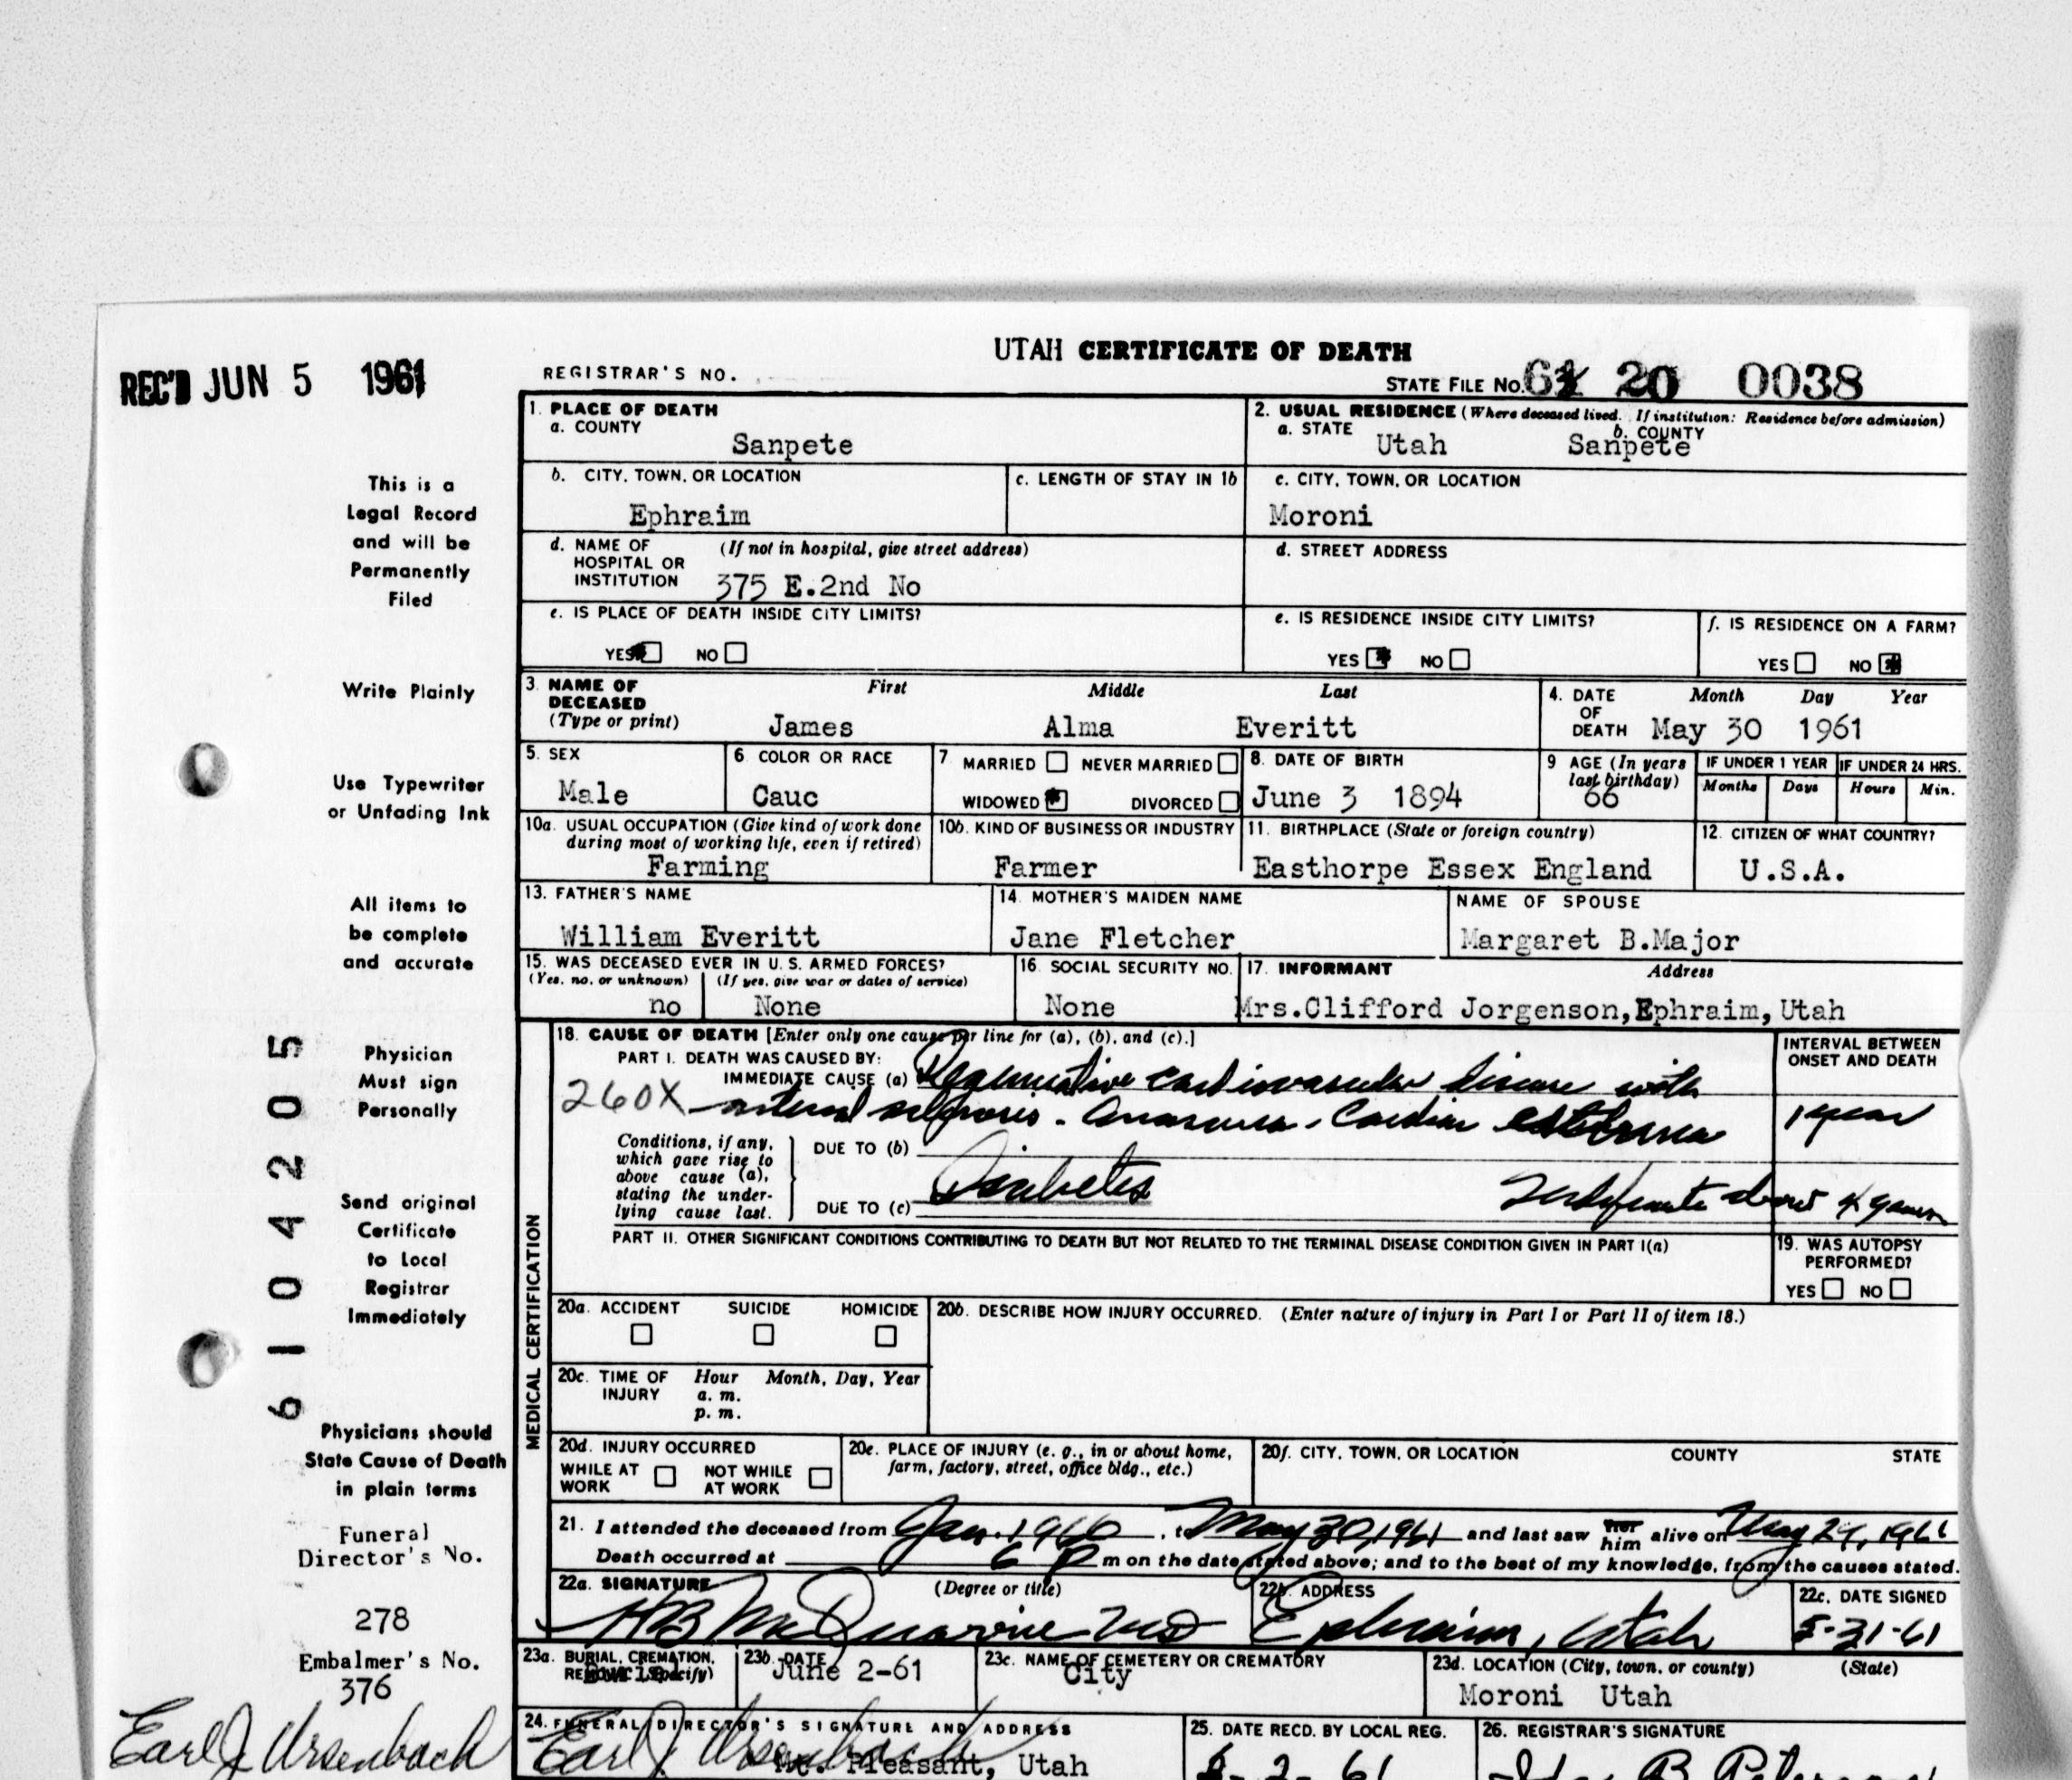 UTAH CERTIFICATE OF DEATH
REC'D JUN 5 1961
REGISTRAR'S NO.
STATE FILE No. 61 20 0038
1. PLACE OF DEATH
a. COUNTY
Sanpete
2. USUAL RESIDENCE (Where deceased lived. If institution: Residence before admission)
a. STATE b. COUNTY
Utah Sanpete
b. CITY, TOWN, OR LOCATION
Ephraim
c. LENGTH OF STAY IN 1b
c. CITY, TOWN, OR LOCATION
Moroni
d. NAME OF (If not in hospital, give street address)
HOSPITAL OR
INSTITUTION 375 E.2nd No
d. STREET ADDRESS
e. IS PLACE OF DEATH INSIDE CITY LIMITS?
YES NO
e. IS RESIDENCE INSIDE CITY LIMITS?
YES NO
f. IS RESIDENCE ON A FARM?
YES NO
3. NAME OF First Middle Last
DECEASED
(Type or print) James Alma Everitt
4. DATE Month Day Year
OF
DEATH May 30 1961
5. SEX
Male
6 COLOR OR RACE
Cauc
7 MARRIED NEVER MARRIED
WIDOWED DIVORCED
8. DATE OF BIRTH
June 3 1894
9 AGE (In years
last birthday)
66
IF UNDER 1 YEAR IF UNDER 24 HRS.
Months Days Hours Min.
10a. USUAL OCCUPATION (Give kind of work done
during most of working life, even if retired)
Farming
10b. KIND OF BUSINESS OR INDUSTRY
Farmer
11. BIRTHPLACE (State or foreign country)
Easthorpe Essex England
12. CITIZEN OF WHAT COUNTRY?
U.S.A.
13. FATHER'S NAME
William Everitt
14. MOTHER'S MAIDEN NAME
Jane Fletcher
NAME OF SPOUSE
Margaret B.Major
15. WAS DECEASED EVER IN U. S. ARMED FORCES?
(Yes, no, or unknown) (If yes, give war or dates of service)
no None
16. SOCIAL SECURITY NO.
None
17. INFORMANT Address
Mrs.Clifford Jorgenson,Ephraim,Utah
MEDICAL CERTIFICATION
18. CAUSE OF DEATH [Enter only one cause per line for (a), (b), and (c).]
PART I. DEATH WAS CAUSED BY:
IMMEDIATE CAUSE (a) Degenerative cardiovascular disease with
260X arterial sclerosis - Anasarca, Cardiac
INTERVAL BETWEEN
ONSET AND DEATH
1 year
Conditions, if any,
which gave rise to
above cause (a),
stating the under-
lying cause last.
DUE TO (b)
DUE TO (c) Diabetes Indefinite about 4 years
PART II. OTHER SIGNIFICANT CONDITIONS CONTRIBUTING TO DEATH BUT NOT RELATED TO THE TERMINAL DISEASE CONDITION GIVEN IN PART I(a)
19. WAS AUTOPSY
PERFORMED?
YES NO
20a. ACCIDENT SUICIDE HOMICIDE
20b. DESCRIBE HOW INJURY OCCURRED. (Enter nature of injury in Part I or Part II of item 18.)
20c. TIME OF Hour Month, Day, Year
INJURY a. m.
p. m.
20d. INJURY OCCURRED
WHILE AT NOT WHILE
WORK AT WORK
20e. PLACE OF INJURY (e. g., in or about home,
farm, factory, street, office bldg., etc.)
20f. CITY, TOWN, OR LOCATION COUNTY STATE
21. I attended the deceased from Jan. 1960, to May 30, 1961 and last saw her him alive on May 29, 1961
Death occurred at 6 P m on the date stated above; and to the best of my knowledge, from the causes stated.
22a. SIGNATURE (Degree or title)
HB McQuarrie MD
22b. ADDRESS
Ephraim, Utah
22c. DATE SIGNED
5-31-61
23a. BURIAL, CREMATION,
REMOVAL (Specify)
Burial
23b. DATE
June 2-61
23c. NAME OF CEMETERY OR CREMATORY
City
23d. LOCATION (City, town, or county) (State)
Moroni Utah
24. FUNERAL DIRECTOR'S SIGNATURE AND ADDRESS
Earl J Ursenbach
Mt. Pleasant, Utah
25. DATE RECD. BY LOCAL REG.
6-2-61
26. REGISTRAR'S SIGNATURE
Ida B Peterson
This is a
Legal Record
and will be
Permanently
Filed
Write Plainly
Use Typewriter
or Unfading Ink
All items to
be complete
and accurate
Physician
Must sign
Personally
Send original
Certificate
to Local
Registrar
Immediately
Physicians should
State Cause of Death
in plain terms
Funeral
Director's No.
278
Embalmer's No.
376
Earl J Ursenbach
6104205